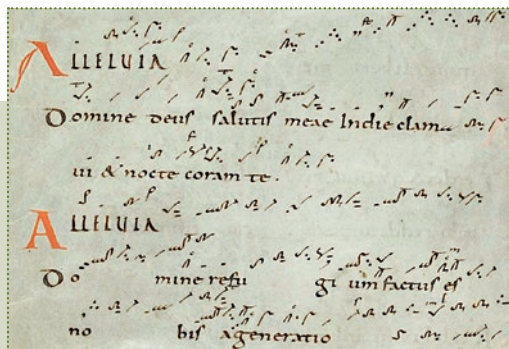 ALLELUIA
Domine deus salutis meae Indie clama
ui & nocte coram te.
ALLELUIA
Do mine refu gi um factus es
no bis ageneratio